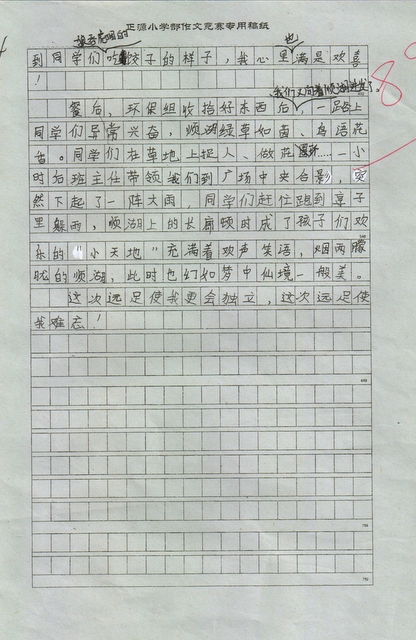 正源小学部作文竞赛专用稿纸
也
到同学们吃饺子的样子，我心里满是欢喜
！
我们又向着顺湖进发了。
餐后，环保组收拾好东西后，一路上
同学们异常兴奋，顺湖绿草如茵、鸟语花
香。同学们在草地上捉人、做花……一小
时后班主任带领我们到广场中央合影，突
然下起了一阵大雨，同学们赶忙跑到亭子
里躲雨，顺湖上的长廊顿时成了孩子们欢
乐的“小天地”充满着欢声笑语，烟雨朦
胧的顺湖，此时也幻如梦中仙境一般美。
这次远足使我更会独立，这次远足使
我难忘！